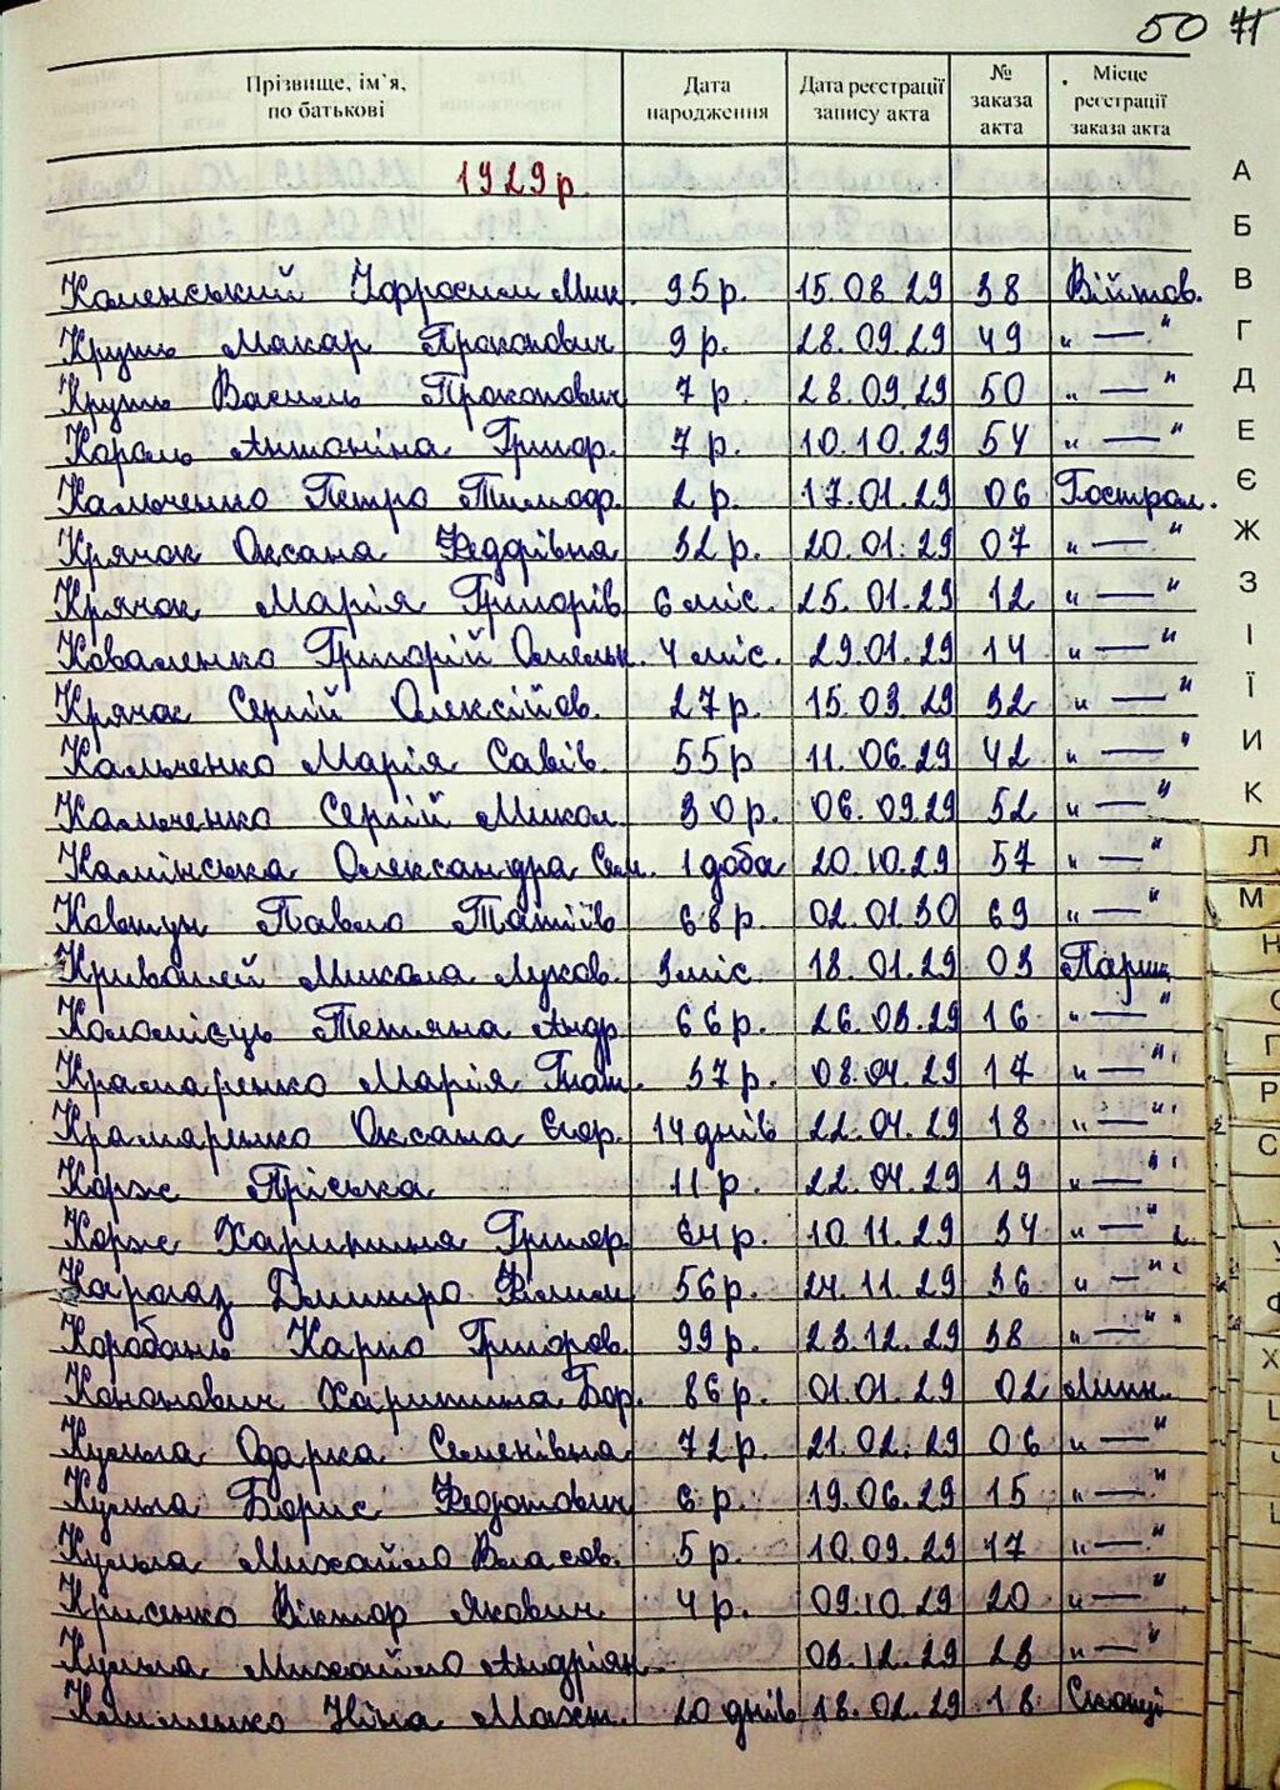 50 71
Прізвище, ім`я, по батькові Дата народження Дата реєстрації запису акта № заказа акта Місце реєстрації заказа акта
1929р.
Каменський Юфросим Мик. 95р. 15.08.29 38 Війтов.
Круть Макар Прокопович 9р. 28.09.29 49 " — "
Круть Василь Прокопович 7р. 28.09.29 50 " — "
Король Антоніна Григор. 7р. 10.10.29 54 " — "
Кальченко Петро Тимоф. 2р. 17.01.29 06 Гострол.
Крячок Оксана Федорівна 32р. 20.01.29 07 " — "
Крячок Марія Григорів 6 міс. 25.01.29 12 " — "
Коваленко Григорій Омельк. 4 міс. 29.01.29 14 " — "
Крячок Сергій Олексійов. 27р. 15.03.29 32 " — "
Кальченко Марія Савів. 55р 11.06.29 42 " — "
Кальченко Сергій Микол. 30р. 06.09.29 52 " — "
Камінська Олександра Сем. 1 доба 20.10.29 57 " — "
Ковтун Павло 68р. 02.01.30 69 " — "
Кривошей Микола Луков. 3міс. 18.01.29 03 Парищ
Коломієць Тетяна Андр. 66р. 26.03.29 16 " — "
Крамаренко Марія 37р. 08.04.29 17 " — "
Крамаренко Оксана Єгор. 14 днів 22.04.29 18 " — "
Корж Пріська 11р. 22.04.29 19 " — "
Корж Харитина Григор. 64р. 10.11.29 34 " — "
Карагаз Дмитро Филим 56р. 24.11.29 36 " — "
Корабань Карпо Григоров. 99р. 23.12.29 38 " — "
Кононович Харитина Бор. 86р. 01.01.29 02 Липн.
Кулига Одарка Семенівна 72р. 21.02.29 06 " — "
Кулига Борис Федотович 6р. 19.06.29 15 " — "
Кулига Михайло Власов. 5р. 10.09.29 17 " — "
Крисенко Віктор Якович 4р. 09.10.29 20 " — "
Кулига Михайло Андріян. 03.12.29 23 " — "
Клименко Ніна Макт. 20 днів 18.02.29 18 Скопці
А
Б
В
Г
Д
Е
Є
Ж
З
І
Ї
И
К
Л
М
Н
П
Р
С
Х